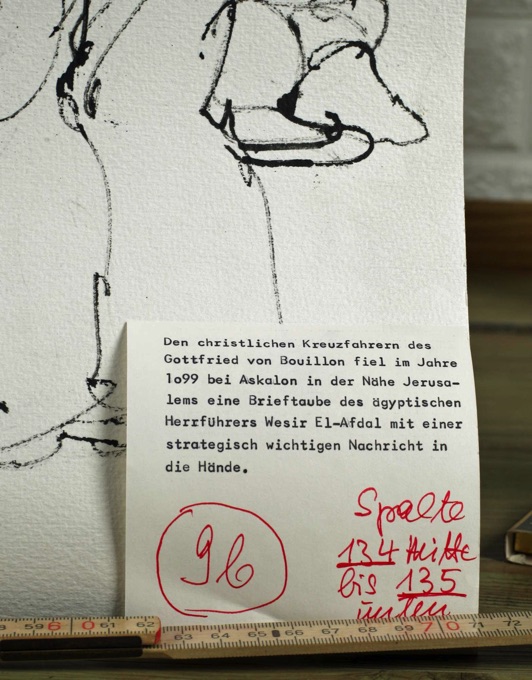 Den christlichen Kreuzfahrern des
Gottfried von Bouillon fiel im Jahre
1o99 bei Askalon in der Nähe Jerusa-
lems eine Brieftaube des ägyptischen
Herrführers Wesir El-Afdal mit einer
strategisch wichtigen Nachricht in
die Hände.
Spalte
134 Mitte
bis 135
unten
9b
59 60 61 62
63 64 65 66 67 68 69 70 71 72